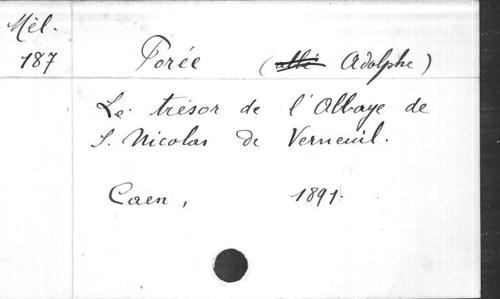 Mél.
187
Porée (abbé Adolphe)
Le trésor de l'Abbaye de
S. Nicolas de Verneuil.
Caen, 1891.